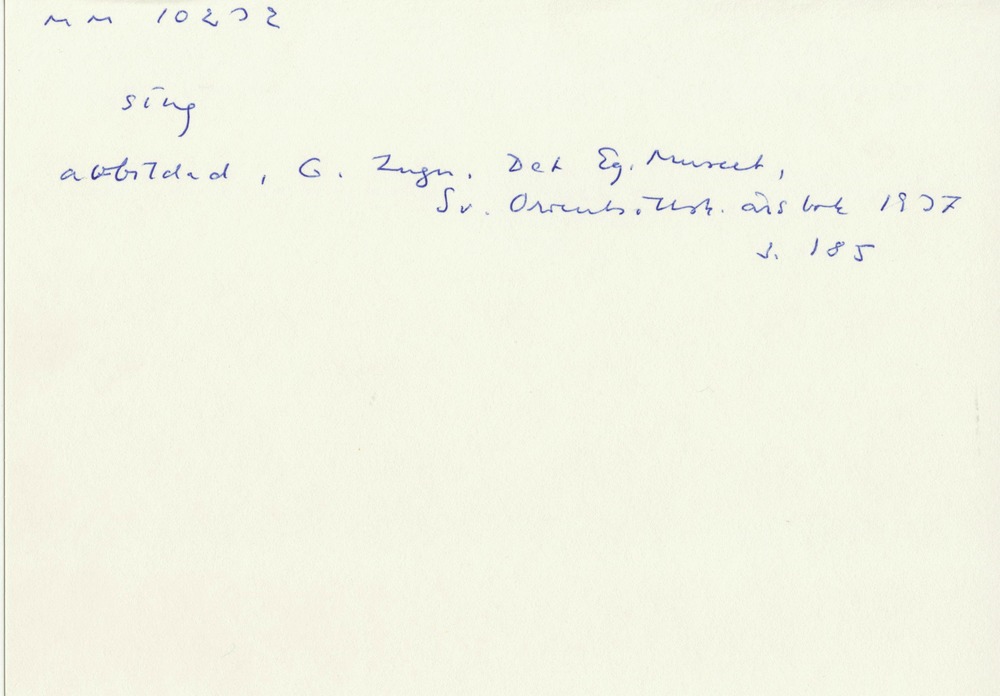 MM 10232
sing
avbildad, G. Lugn. Det Eg. Museet,
Sv. Orientsällsk. årsbok 1937
s. 185